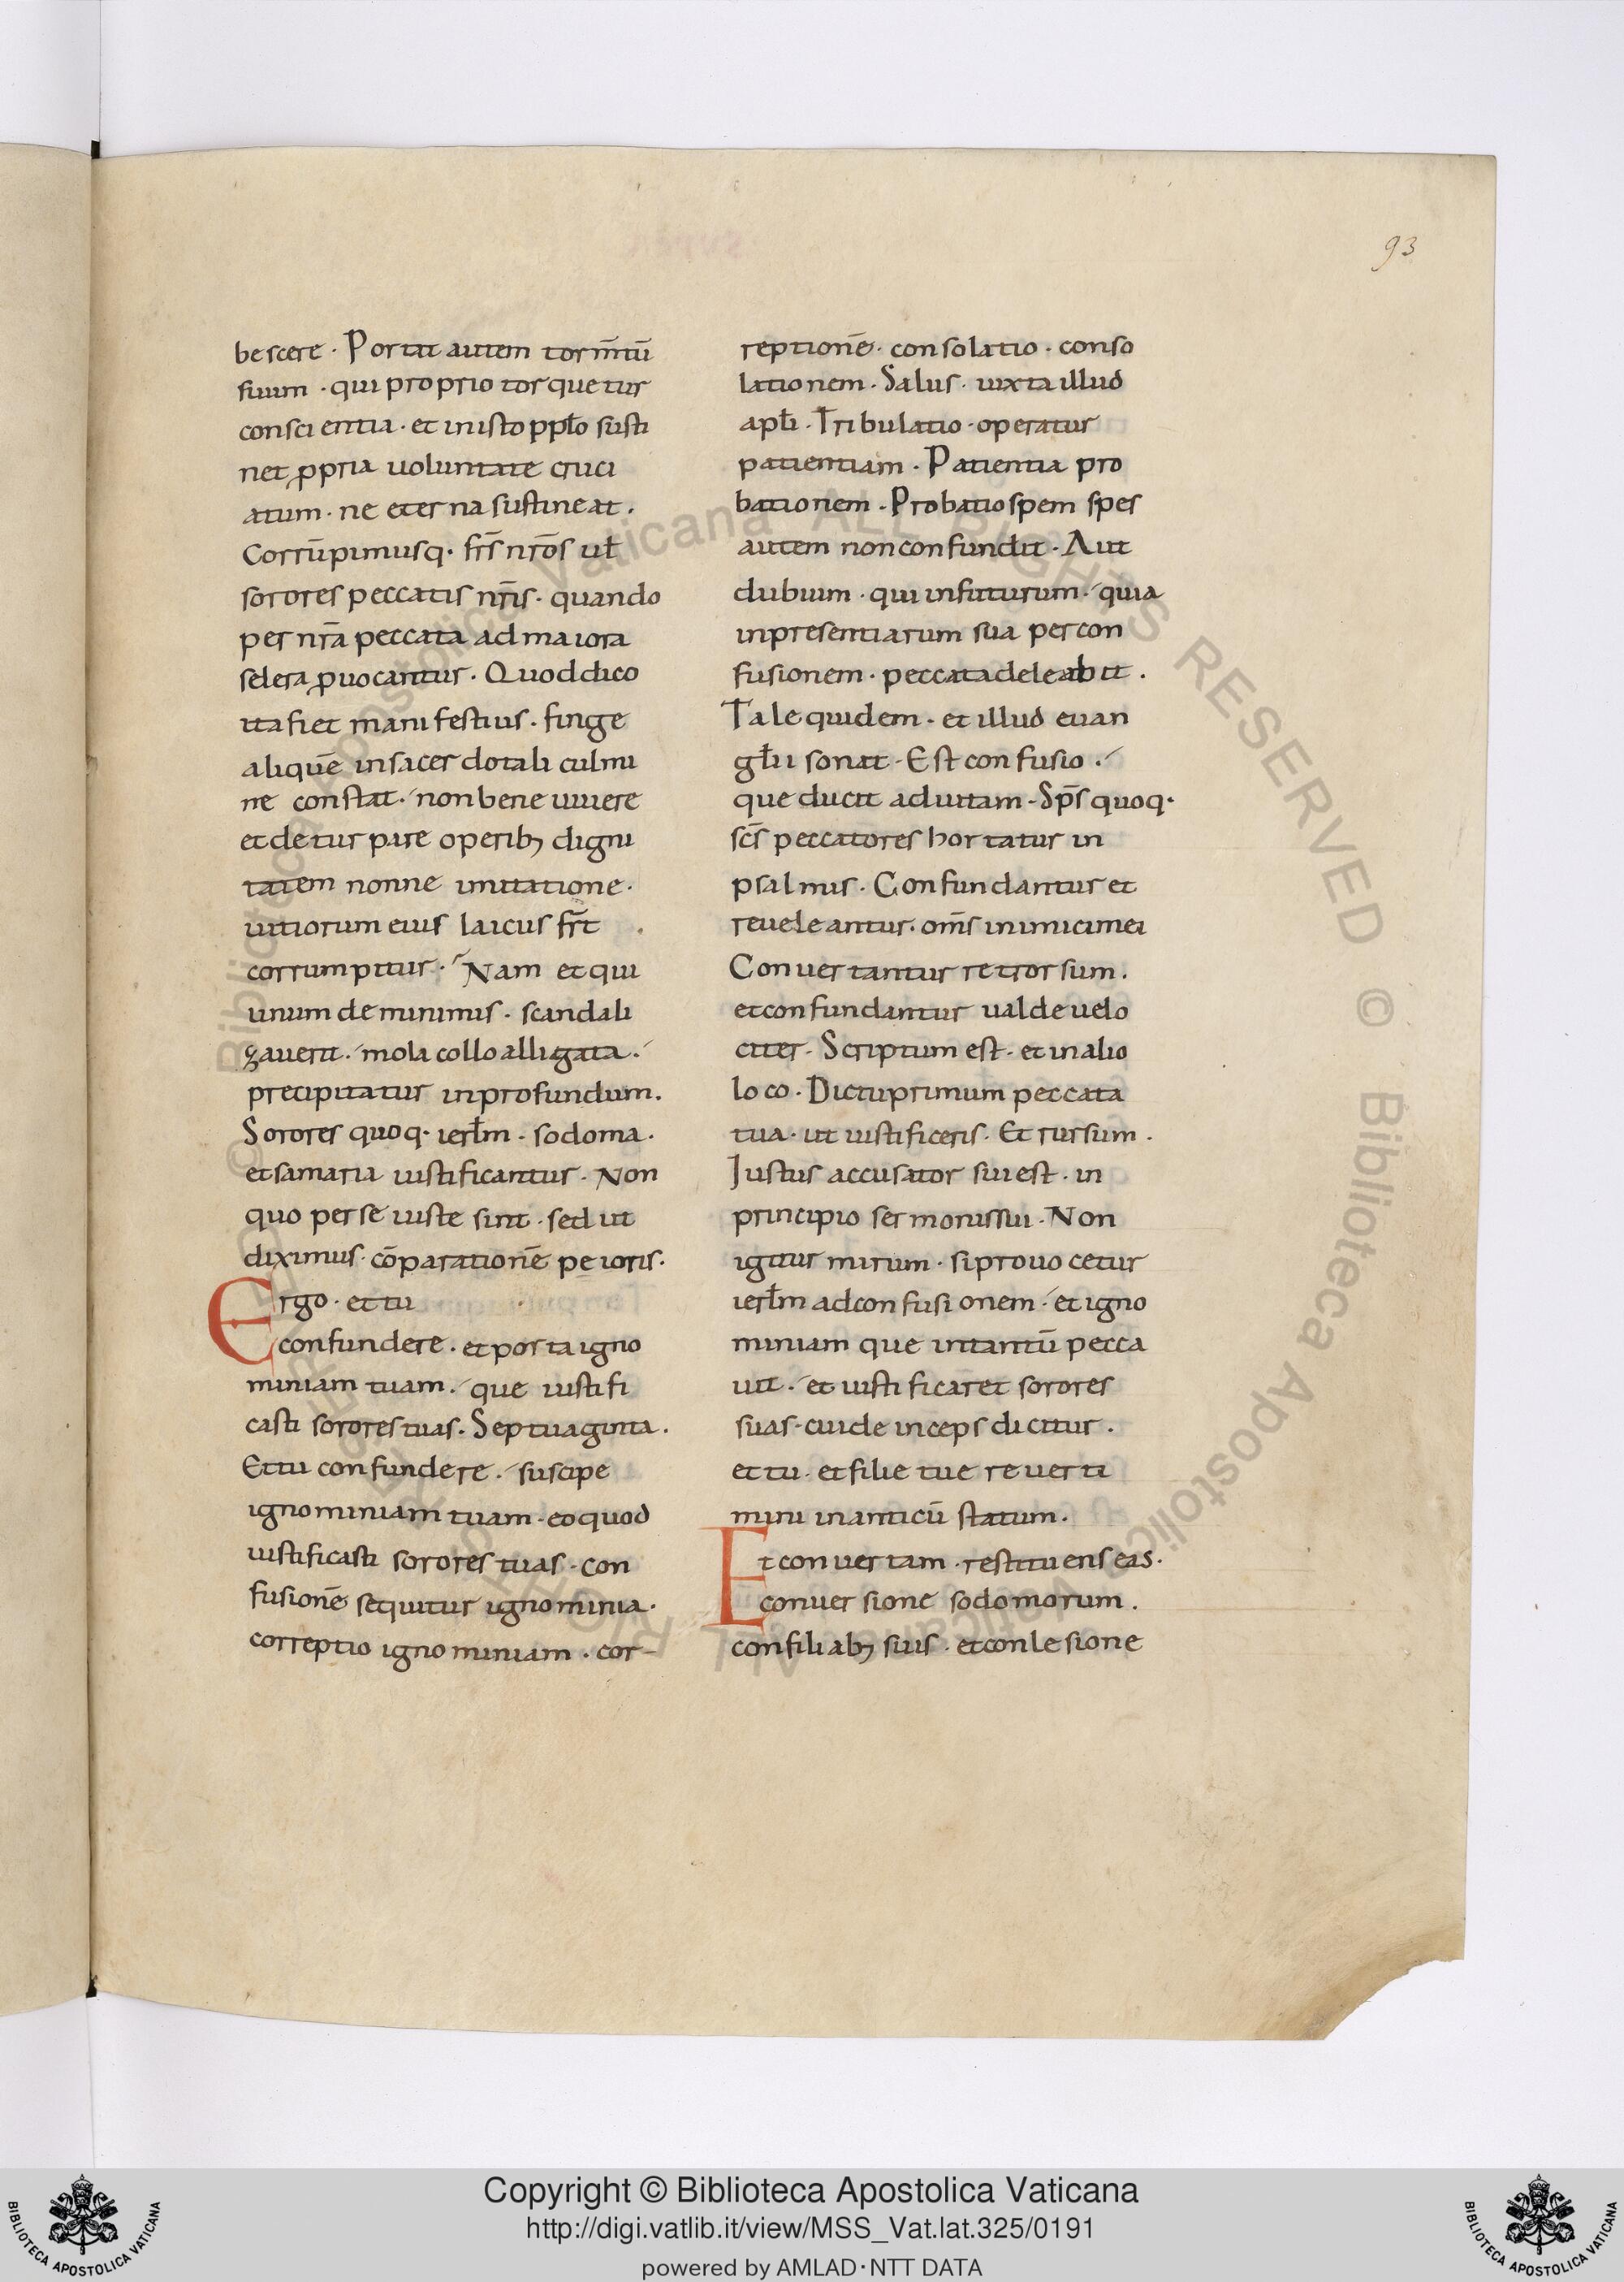 93
bescere · Portat autem torm̄tū
suum · qui proprio torquetur
conscientia · et inisto pplo susti
net ppria uoluntate cruci
atum · ne eterna sustineat .
Corrūpimusq· frs̄ nr̄os ul
sorores peccatis nr̄is · quando
per nr̄a peccata ad maiora
selera puocantur · Quod dico
ita fiet manifestius · finge
aliquē in sacerdotali culmi
ne constat · non bene uiuere
et deturpare operib; digni
tatem nonne imitatione ·
uitiorum eius laicus fr̄t
corrumpitur · Nam et qui
unum de minimis · scandali
zauerit · mola collo alligata ·
precipitatur in profundum .
Sorores quoq· ierlm · sodoma ·
et samaria iustificantur · Non
quo per se iuste sint · sed ut
diximus · cōparationē peioris ·
Ergo · et tu
confundere · et porta igno
miniam tuam · que iustifi
casti sorores tuas · Septuaginta ·
Et tu confundere · suscipe
ignominiam tuam · eo quod
iustificasti sorores tuas · con
fusionē sequitur ignominia ·
correptio ignominiam · cor-
reptionē · consolatio · conso
lationem · Salus · iuxta illud
apli · Tribulatio · operatur
patientiam · Patientia pro
bationem · Probatio spem spes
autem non confundit · Aut
dubium · qui in futurum · quia
inpresentiarum sua per con
fusionem · peccata deleabit .
Tale quidem · et illud euan
glii sonat · Est confusio ·
que ducit ad uitam · Sps̄ quoq·
scs̄ peccatores hortatur in
psalmis · Confundantur et
reueleantur · oms̄ inimici mei
Conuertantur retrorsum .
et confundantur ualde uelo
citer · Scriptum est · et in alio
loco · Dic tu primum peccata
tua · ut iustificeris · Et rursum ·
Justus accusator sui est · in
principio sermonis sui · Non
igitur mirum · si prouocetur
ierlm ad confusionem · et igno
miniam que in tantū pecca
uit · et iustificaret sorores
suas · cui deinceps dicitur ·
et tu · et filie tue reuerti
mini in anticū statum .
Et conuertam · restituens eas ·
conuersione sodomorum .
con filiab; suis · et conlesione
Copyright © Biblioteca Apostolica Vaticana
http://digi.vatlib.it/view/MSS_Vat.lat.325/0191
powered by AMLAD·NTT DATA
BIBLIOTECA APOSTOLICA VATICANA
BIBLIOTECA APOSTOLICA VATICANA